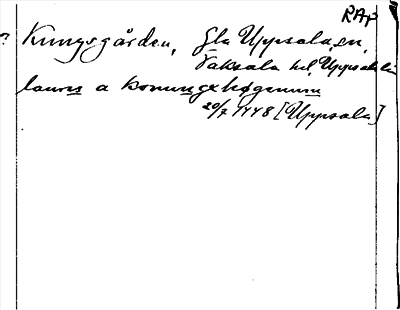 RAp
? Kungsgården, Gla Uppsala, sn,
Vaksala hd, Uppsala län
laurens a konungxhøgenum
20/7 1448 [Uppsala]